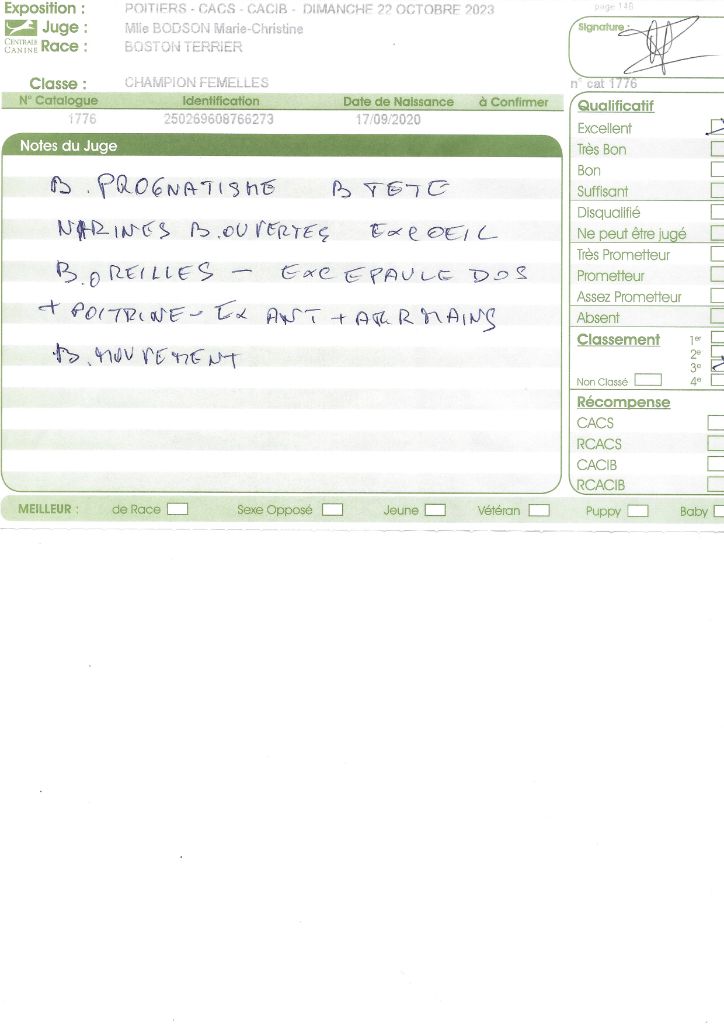 Exposition : POITIERS - CACS - CACIB - DIMANCHE 22 OCTOBRE 2023
page 148
Juge : Mlle BODSON Marie-Christine
CENTRALE CANINE
Race : BOSTON TERRIER
Signature :
Classe : CHAMPION FEMELLES
n° cat 1776
N° Catalogue Identification Date de Naissance à Confirmer
1776 250269608766273 17/09/2020
Notes du Juge
B. PROGNATISME B TETE
NARINES B.OUVERTES EXC OEIL
B.OREILLES - EXC EPAULE DOS
+ POITRINE - EX ANT + ARR MAINS
B.MOUVEMENT
Qualificatif
Excellent
Très Bon
Bon
Suffisant
Disqualifié
Ne peut être jugé
Très Prometteur
Prometteur
Assez Prometteur
Absent
Classement 1er
2e
3e
Non Classé 4e
Récompense
CACS
RCACS
CACIB
RCACIB
MEILLEUR : de Race Sexe Opposé Jeune Vétéran Puppy Baby